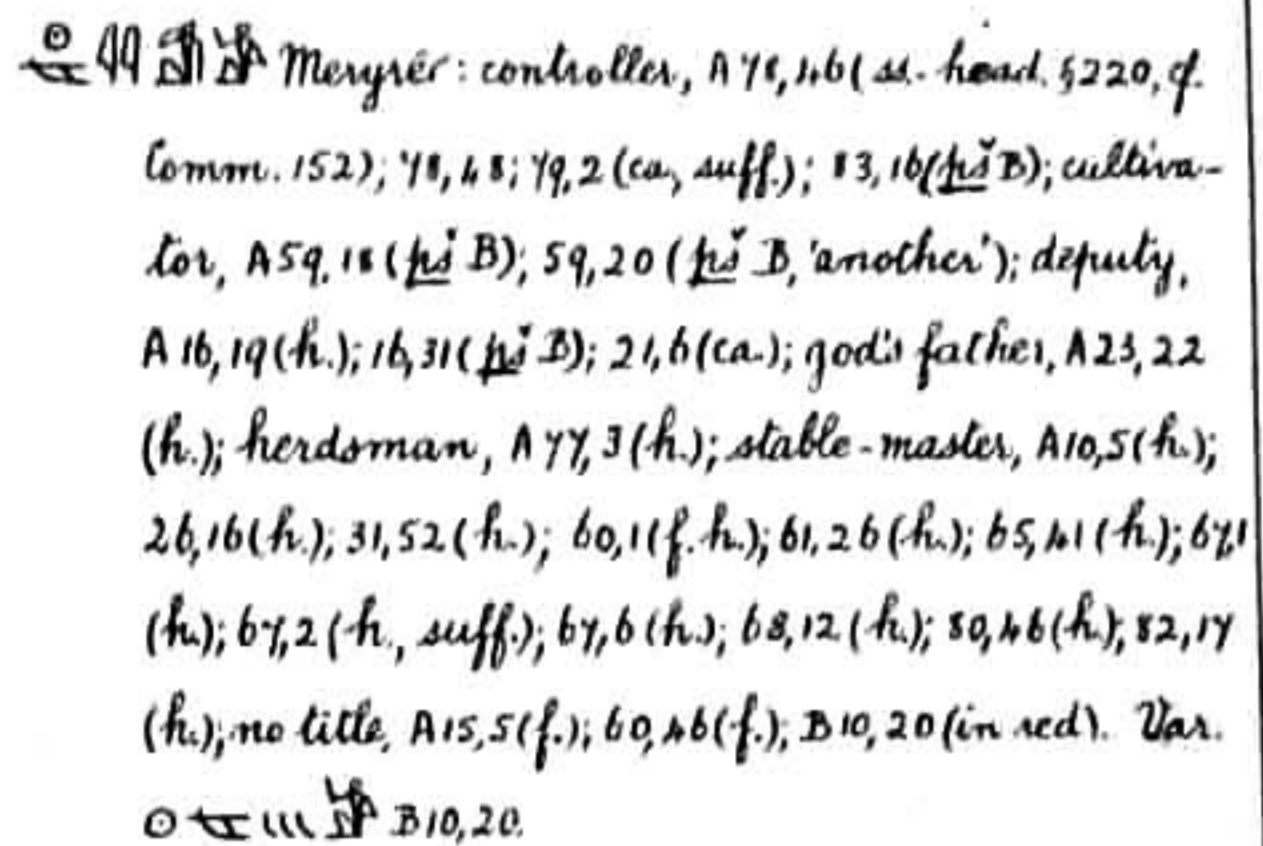 Meryrēʿ: controller, A78,46(ss.-head. §220, cf.
Comm. 152); 78,48; 79,2(ca., suff.); 83,16(pš B); cultiva-
tor, A59,18(pš B); 59,20(pš B, 'another'); deputy,
A16,19(h.); 16,31(pš B); 21,6(ca.); god's father, A23,22
(h.); herdsman, A77,3(h.); stable-master, A10,5(h.);
26,16(h.); 31,52(h.); 60,1(f.h.); 61,26(h.); 65,41(h.); 67,1
(h.); 67,2(h., suff.); 67,6(h.); 68,12(h.); 80,46(h.); 82,17
(h.); no title, A15,5(f.); 60,46(f.); B10,20(in red). Var.
B10,20.